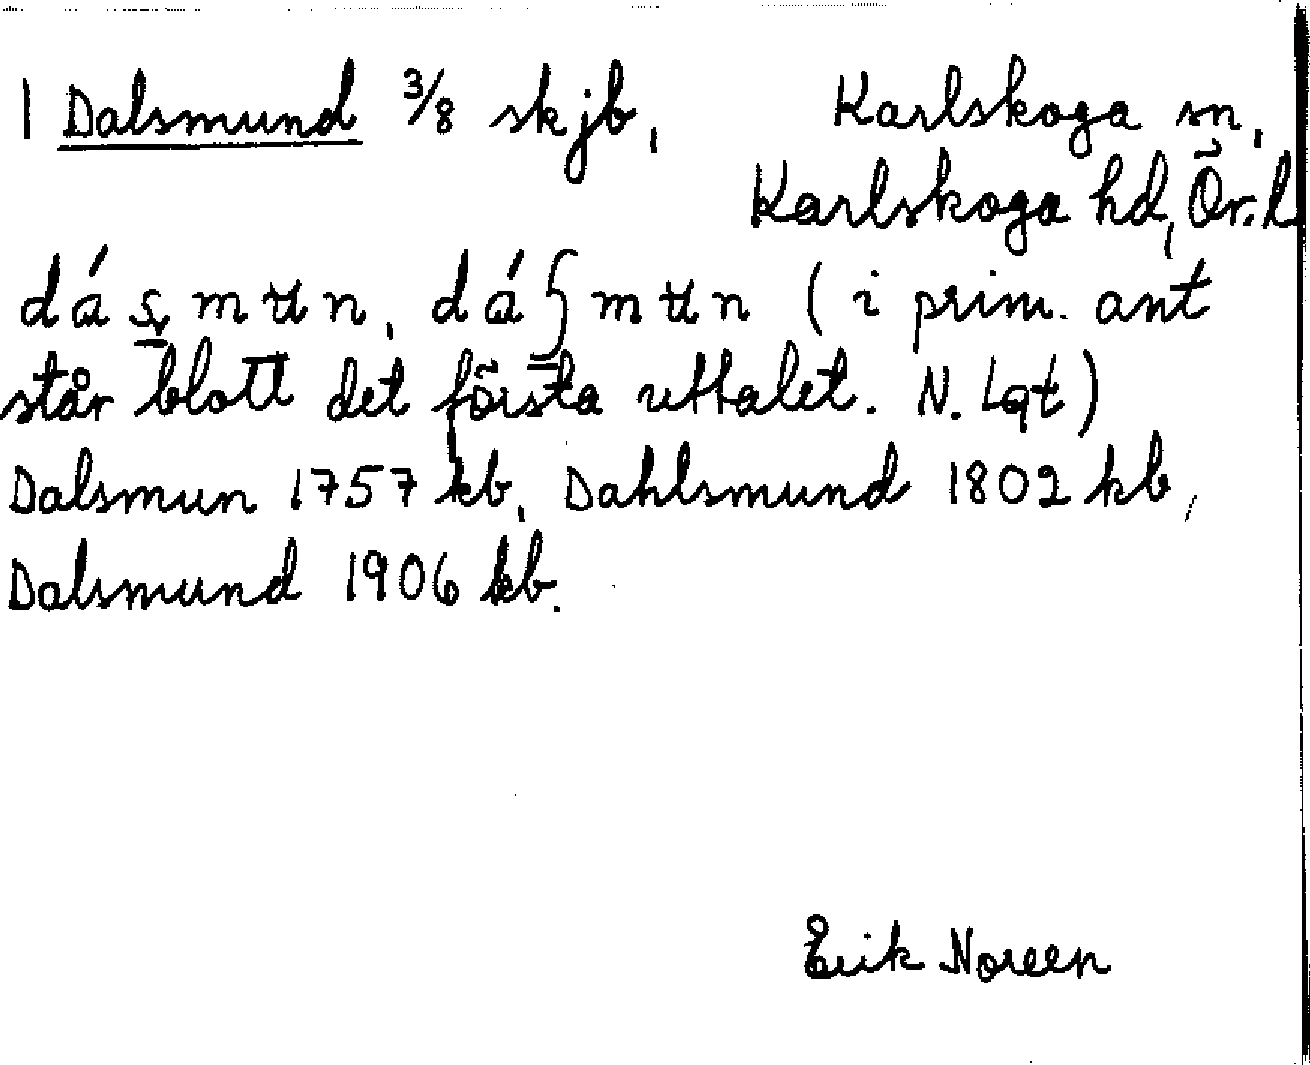 1 Dalsmund 3/8 skjb, Karlskoga sn,
Karlskoga hd, Ör.l
dáşmʉn, dáʃmʉn (i prim. ant
står blott det första uttalet. N. Lqt)
Dalsmun 1757 kb, Dahlsmund 1802 kb,
Dalsmund 1906 kb.
Erik Noreen